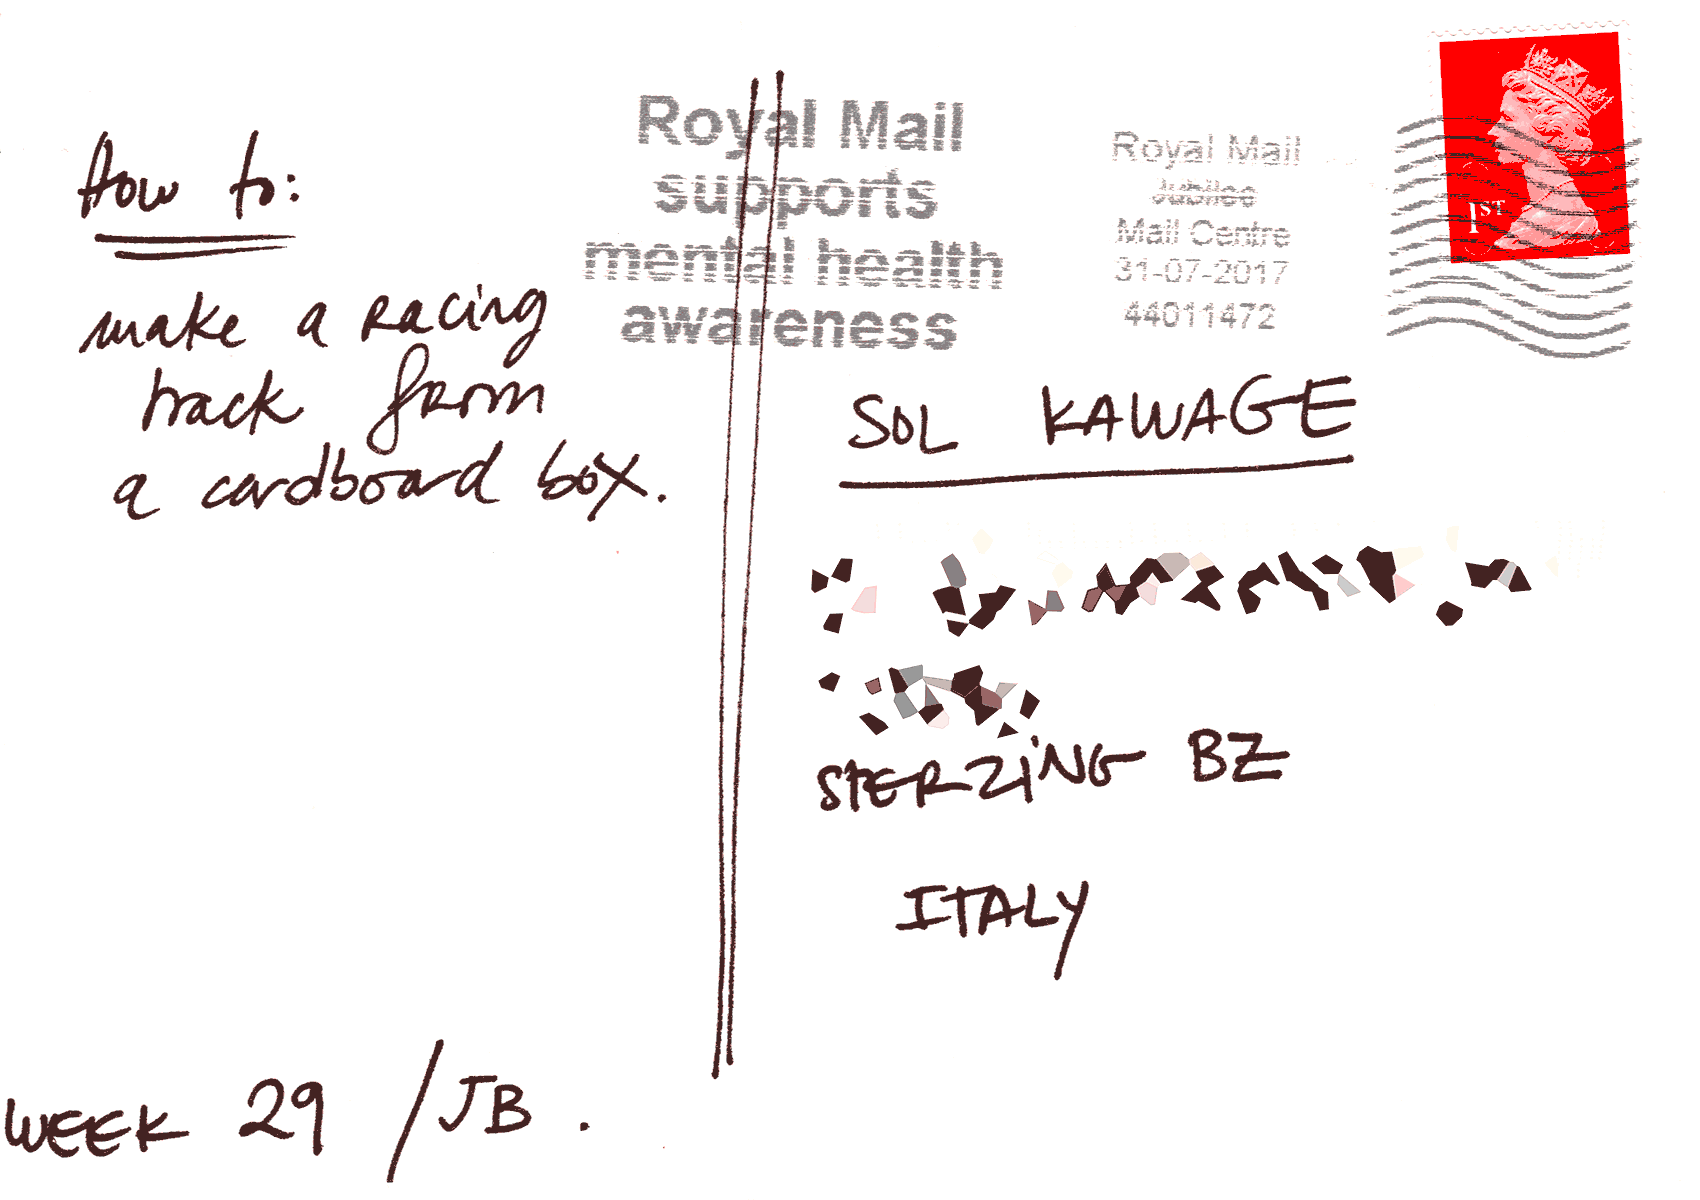 How to:
make a racing
track from
a cardboard box.
WEEK 29 / JB.
Royal Mail
supports
mental health
awareness
Royal Mail
Jubilee
Mail Centre
31-07-2017
44011472
1ST
SOL KAWAGE
STERZiNG BZ
ITALY